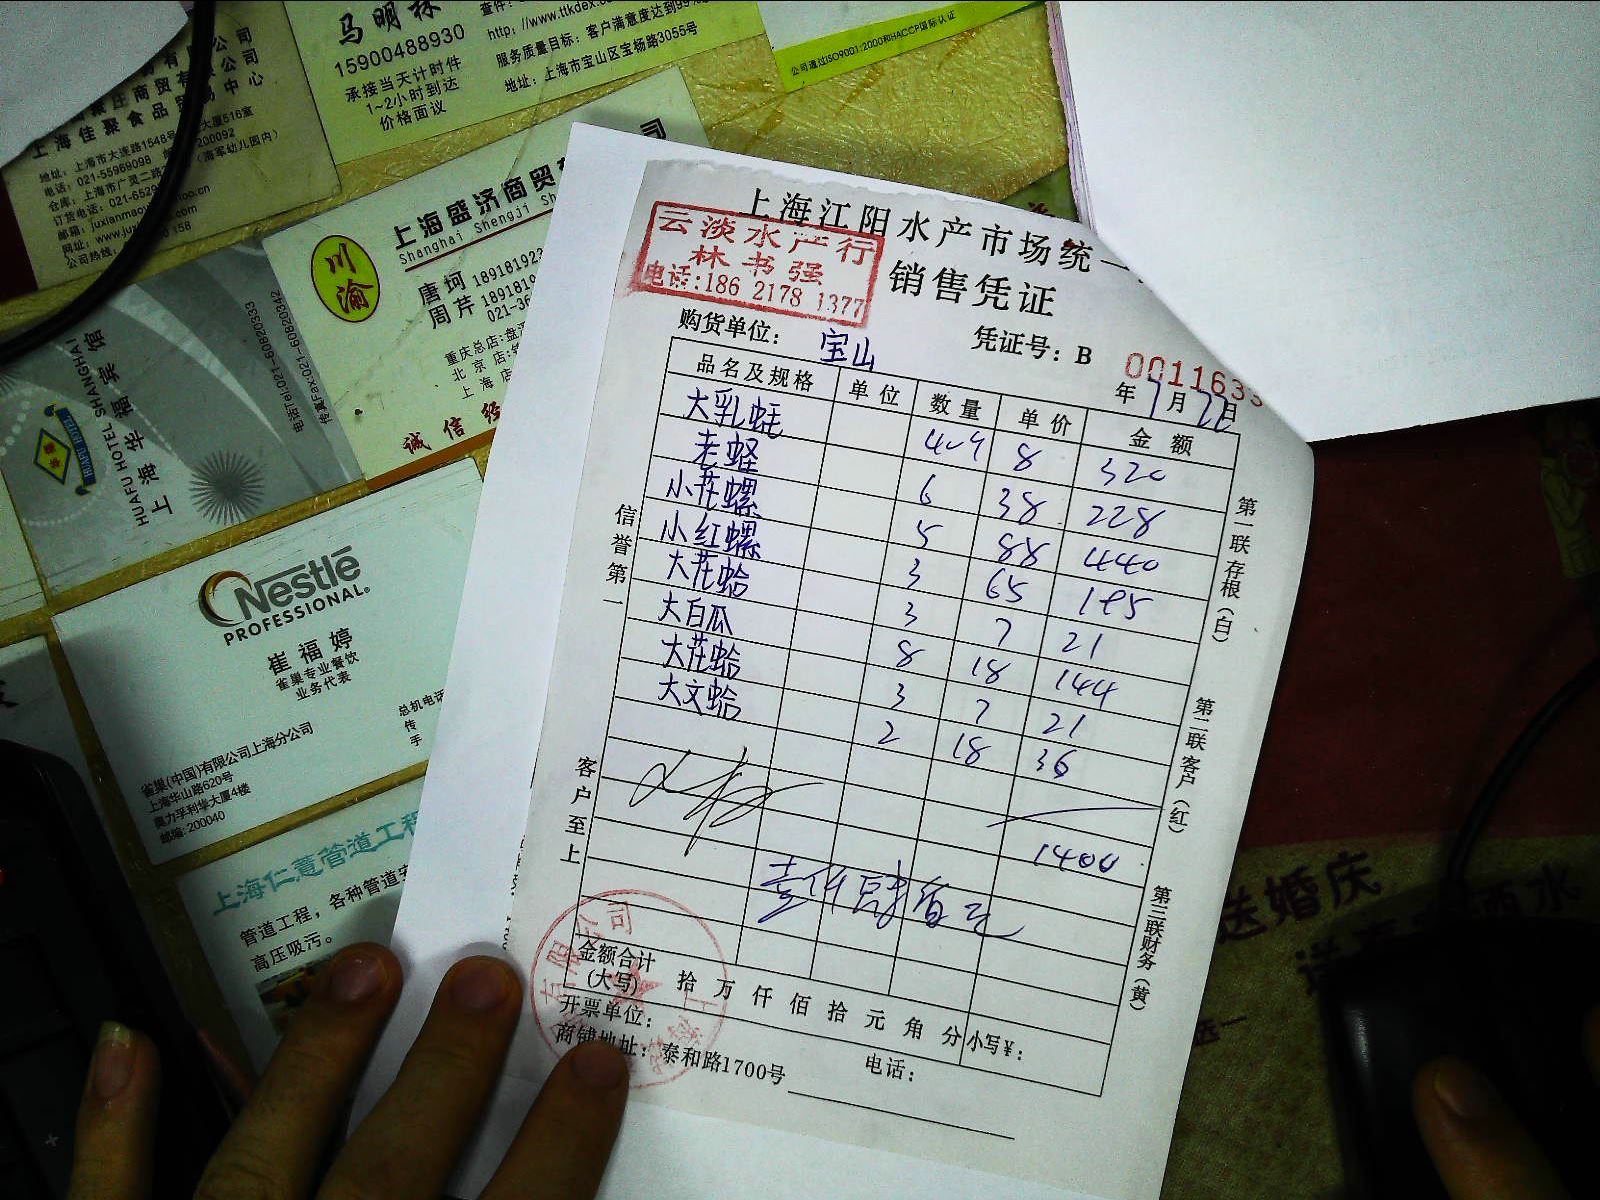 马明
15900488930
承接当天计时件
1~2小时到达
价格面议
查件:
http://www.ttkdex.co
服务质量目标:客户满意度达到99
地址:上海市宝山区宝杨路3055号
公司通过ISO9001:2000和HACCP国际认证
庄商贸有限公司
上海佳聚食品 中心
地址:上海市大连路1548号 大厦516室
电话:021-55969098 200092
仓库:上海市广灵二路 (海军幼儿园内)
订货电话:021-6529
邮箱:juxianmao
网址:www.jux
公司热线:
川渝
上海盛济商贸
Shanghai Shengji Sh
唐坷 18918192
周芹 189181
021-36
重庆总店:盘
北京 店:
上海 店
诚信经
上海华福宾馆
HUAFU HOTEL SHANGHAI
电话Tel:021-60820333
传真Fax:021-60820342
Nestlé
PROFESSIONAL®
崔福婷
雀巢专业餐饮
业务代表
总机电话
传
手
雀巢(中国)有限公司上海分公司
上海华山路620号
奥力孚利华大厦4楼
邮编:200040
上海仁薏管道工程
管道工程,各种管道安
高压吸污。
上海江阳水产市场统一
销售凭证
云淡水产行
林书强
电话:186 2178 1377
购货单位: 宝山
凭证号:B 0011633
年 7月22日
品名及规格 单位 数量 单价 金额
大乳蚝 40.9 8 320
老蛏 6 38 228
小花螺 5 88 440
小红螺 3 65 195
大花蛤 3 7 21
大白瓜 8 18 144
大花蛤 3 7 21
大文蛤 2 18 36
1400
壹仟肆佰元
信誉第一
客户至上
第一联存根(白)
第二联客户(红)
第三联财务(黄)
金额合计
(大写) 拾万仟佰拾元角分 小写¥:
开票单位:
商铺地址:泰和路1700号
电话:
送婚庆